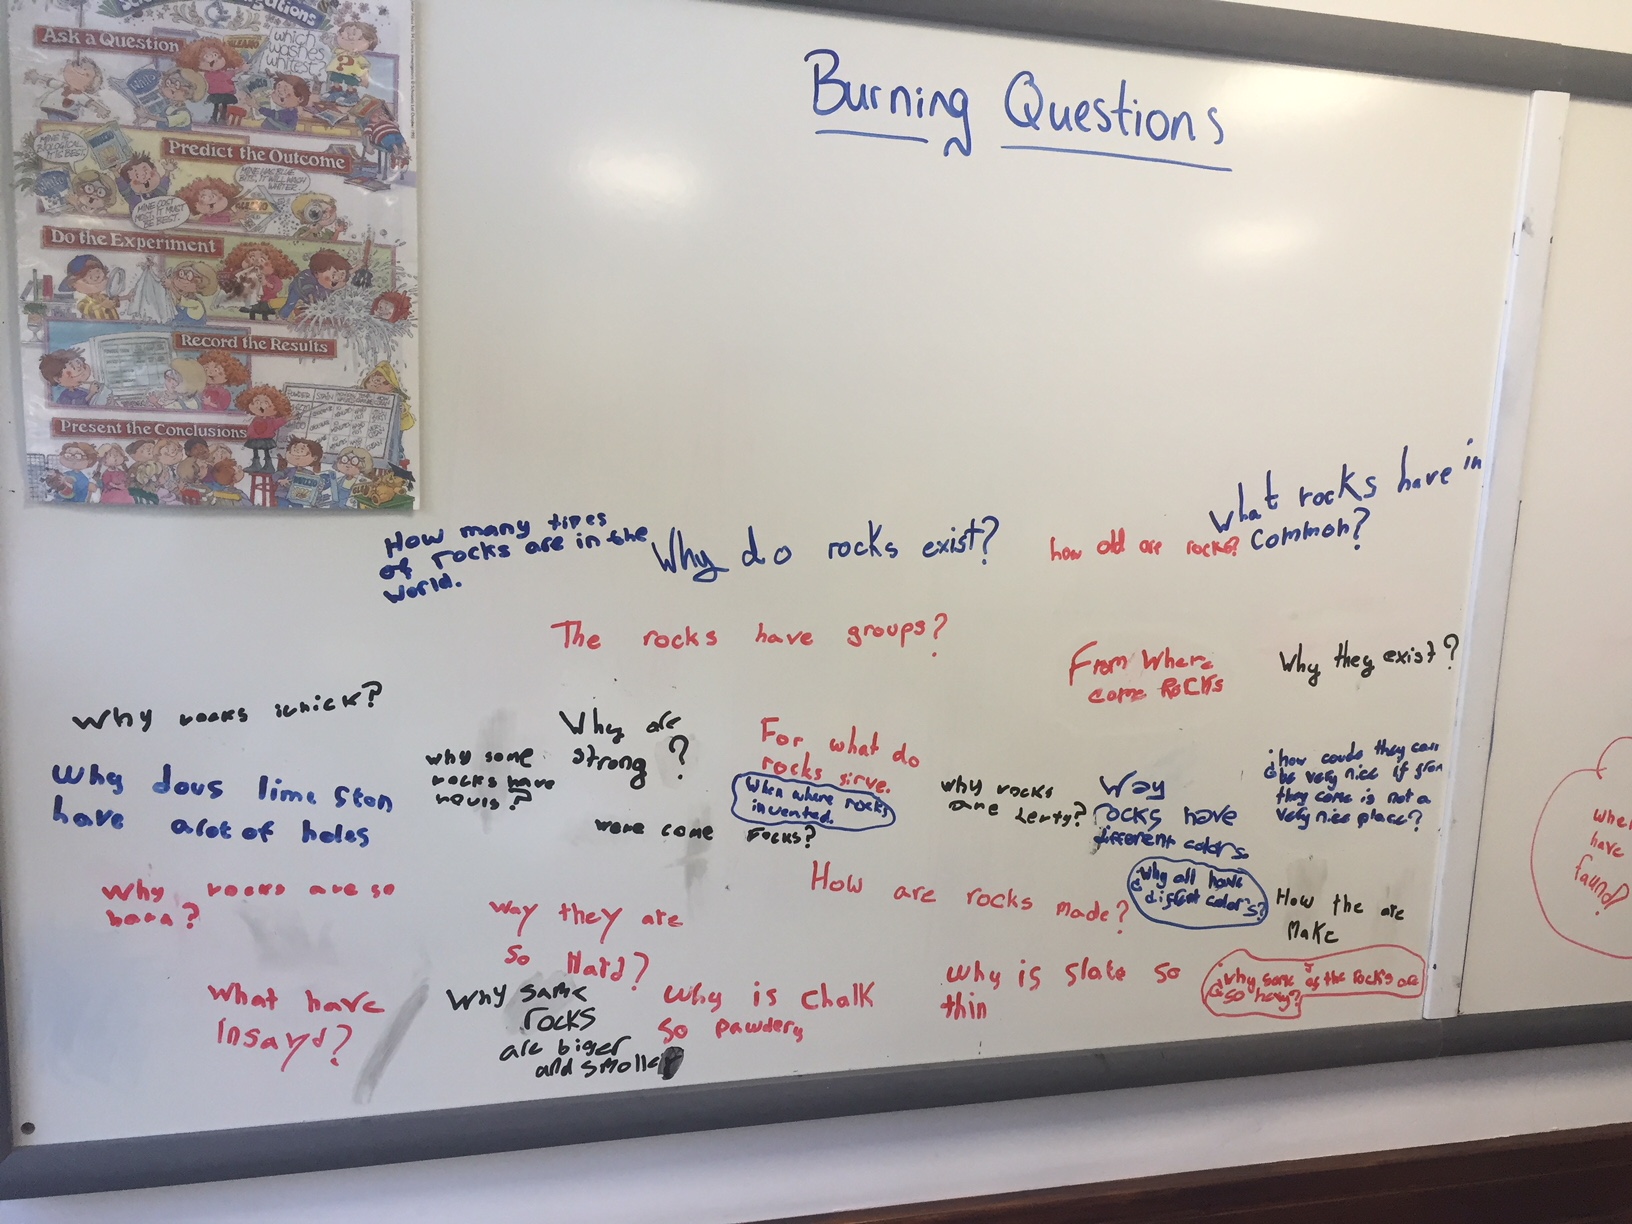 Ask a Question
which
washes
whitest?
Predict the Outcome
MINE COST
MOST. IT MUST
BE BEST.
Do the Experiment
Record the Results
Present the Conclusions
Burning Questions
What rocks have in
common?
How many tipes
of rocks are in the
world.
Why do rocks exist?
how old are rocks?
The rocks have groups?
From Where
come RocKs
Why they exist?
Why rocks
Why are
strong?
why some
rocks have
For what do
rocks sirve.
When where rocks
invented.
why rocks
are
Way
rocks have
different colors.
¿how could they can
be very nice if from
they come is not a
very nice place?
why dous lime ston
have alot of holes
were come rocks?
Why rocks are so
How are rocks made?
¿why all have
How the are
Make
way they are
so Hard?
What have
insayd?
Why some
rocks
are biger
and smoller
why is chalk
so pawdery
why is slate so
thin
¿why some of the rocks are
so
have